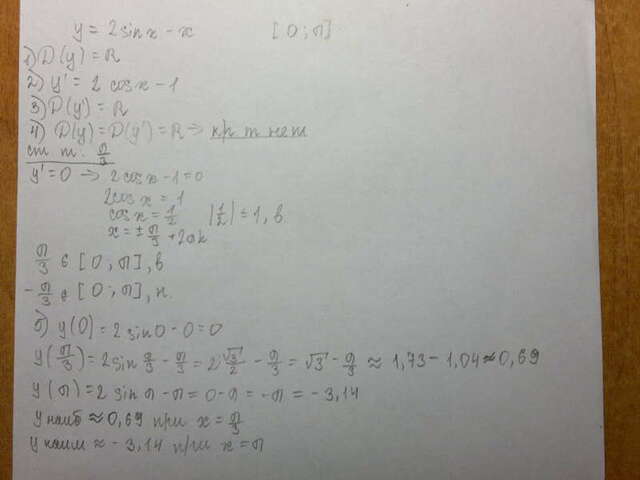 y = 2 sin x - x [0; π]
1) D(y) = R
2) y' = 2 cos x - 1
3) D(y') = R
4) D(y) = D(y') = R => кр т нет
ст т. π/3
y' = 0 -> 2 cos x - 1 = 0
2 cos x = 1
cos x = 1/2 |1/2| ≤ 1, в
x = ± π/3 + 2πk
π/3 ∈ [0; π], в
- π/3 ∈ [0; π], н.
5) y(0) = 2 sin 0 - 0 = 0
y(π/3) = 2 sin π/3 - π/3 = 2 √3/2 - π/3 = √3 - π/3 ≈ 1,73 - 1,04 ≈ 0,69
y(π) = 2 sin π - π = 0 - π = -π = -3,14
y наиб ≈ 0,69 при x = π/3
y наим ≈ - 3,14 при x = π